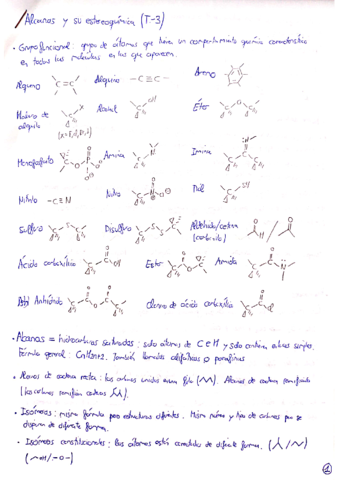 Alcanos y su estereoquímica (T-3)
• Grupo funcional: grupo de átomos que tiene un comportamiento químico característico
en todas las moléculas en las que aparecen.
Alqueno
Alquino -C≡C-
Areno
Haluro de
alquilo
Alcohol
Éter
Monofosfato
Amina
Imina
Nitrilo -C≡N
Nitro
Tiol
Sulfuro
Disulfuro
Aldehído/cetona
(carbonilo)
Ácido carboxílico
Ester
Amida
Anhídrido
Cloruro de ácido carboxílico
• Alcanos = hidrocarburos saturados: solo átomos de C e H y solo contiene enlaces simples.
Fórmula general: CnH2n+2. También llamados alifáticos o parafinas
• Alcanos de cadena recta: los carbonos unidos en fila. Alcanos de cadena ramificada
(los carbonos ramifican cadenas).
• Isómeros: misma fórmula pero estructuras diferentes. Mismo número y tipo de carbonos que se
disponen de diferente forma.
• Isómeros constitucionales: los átomos están conectados de diferente forma.
1